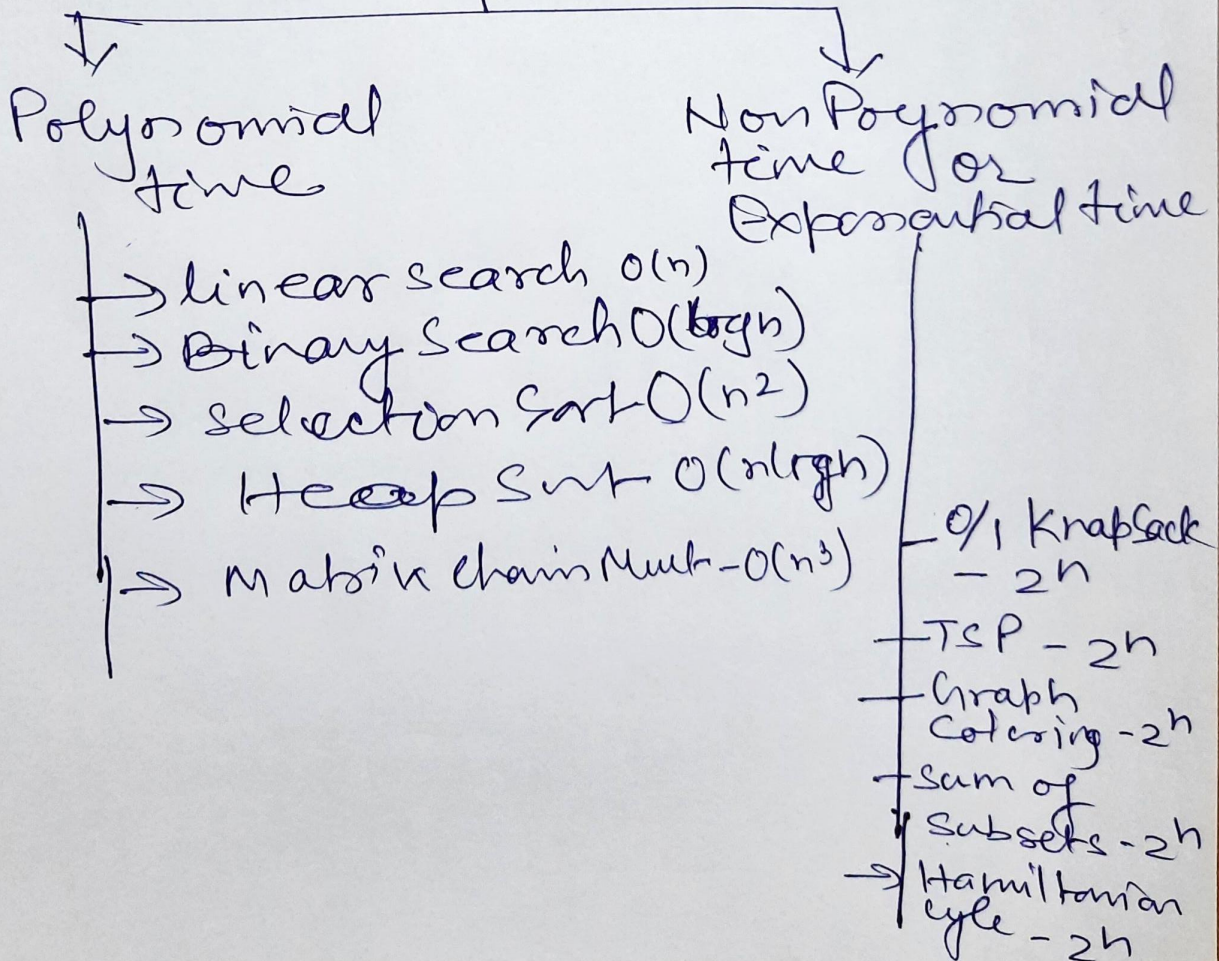 Polynomial
time
linear search O(n)
Binary Search O(logn)
Selection Sort O(n2)
Heap Sort O(nlogn)
Matrix Chain Mult - O(n3)
Non Poynomial
time or
Exponential time
0/1 KnapSack
- 2n
TSP - 2n
Graph
Coloring - 2n
Sum of
Subsets - 2n
Hamiltonian
Cyle - 2n